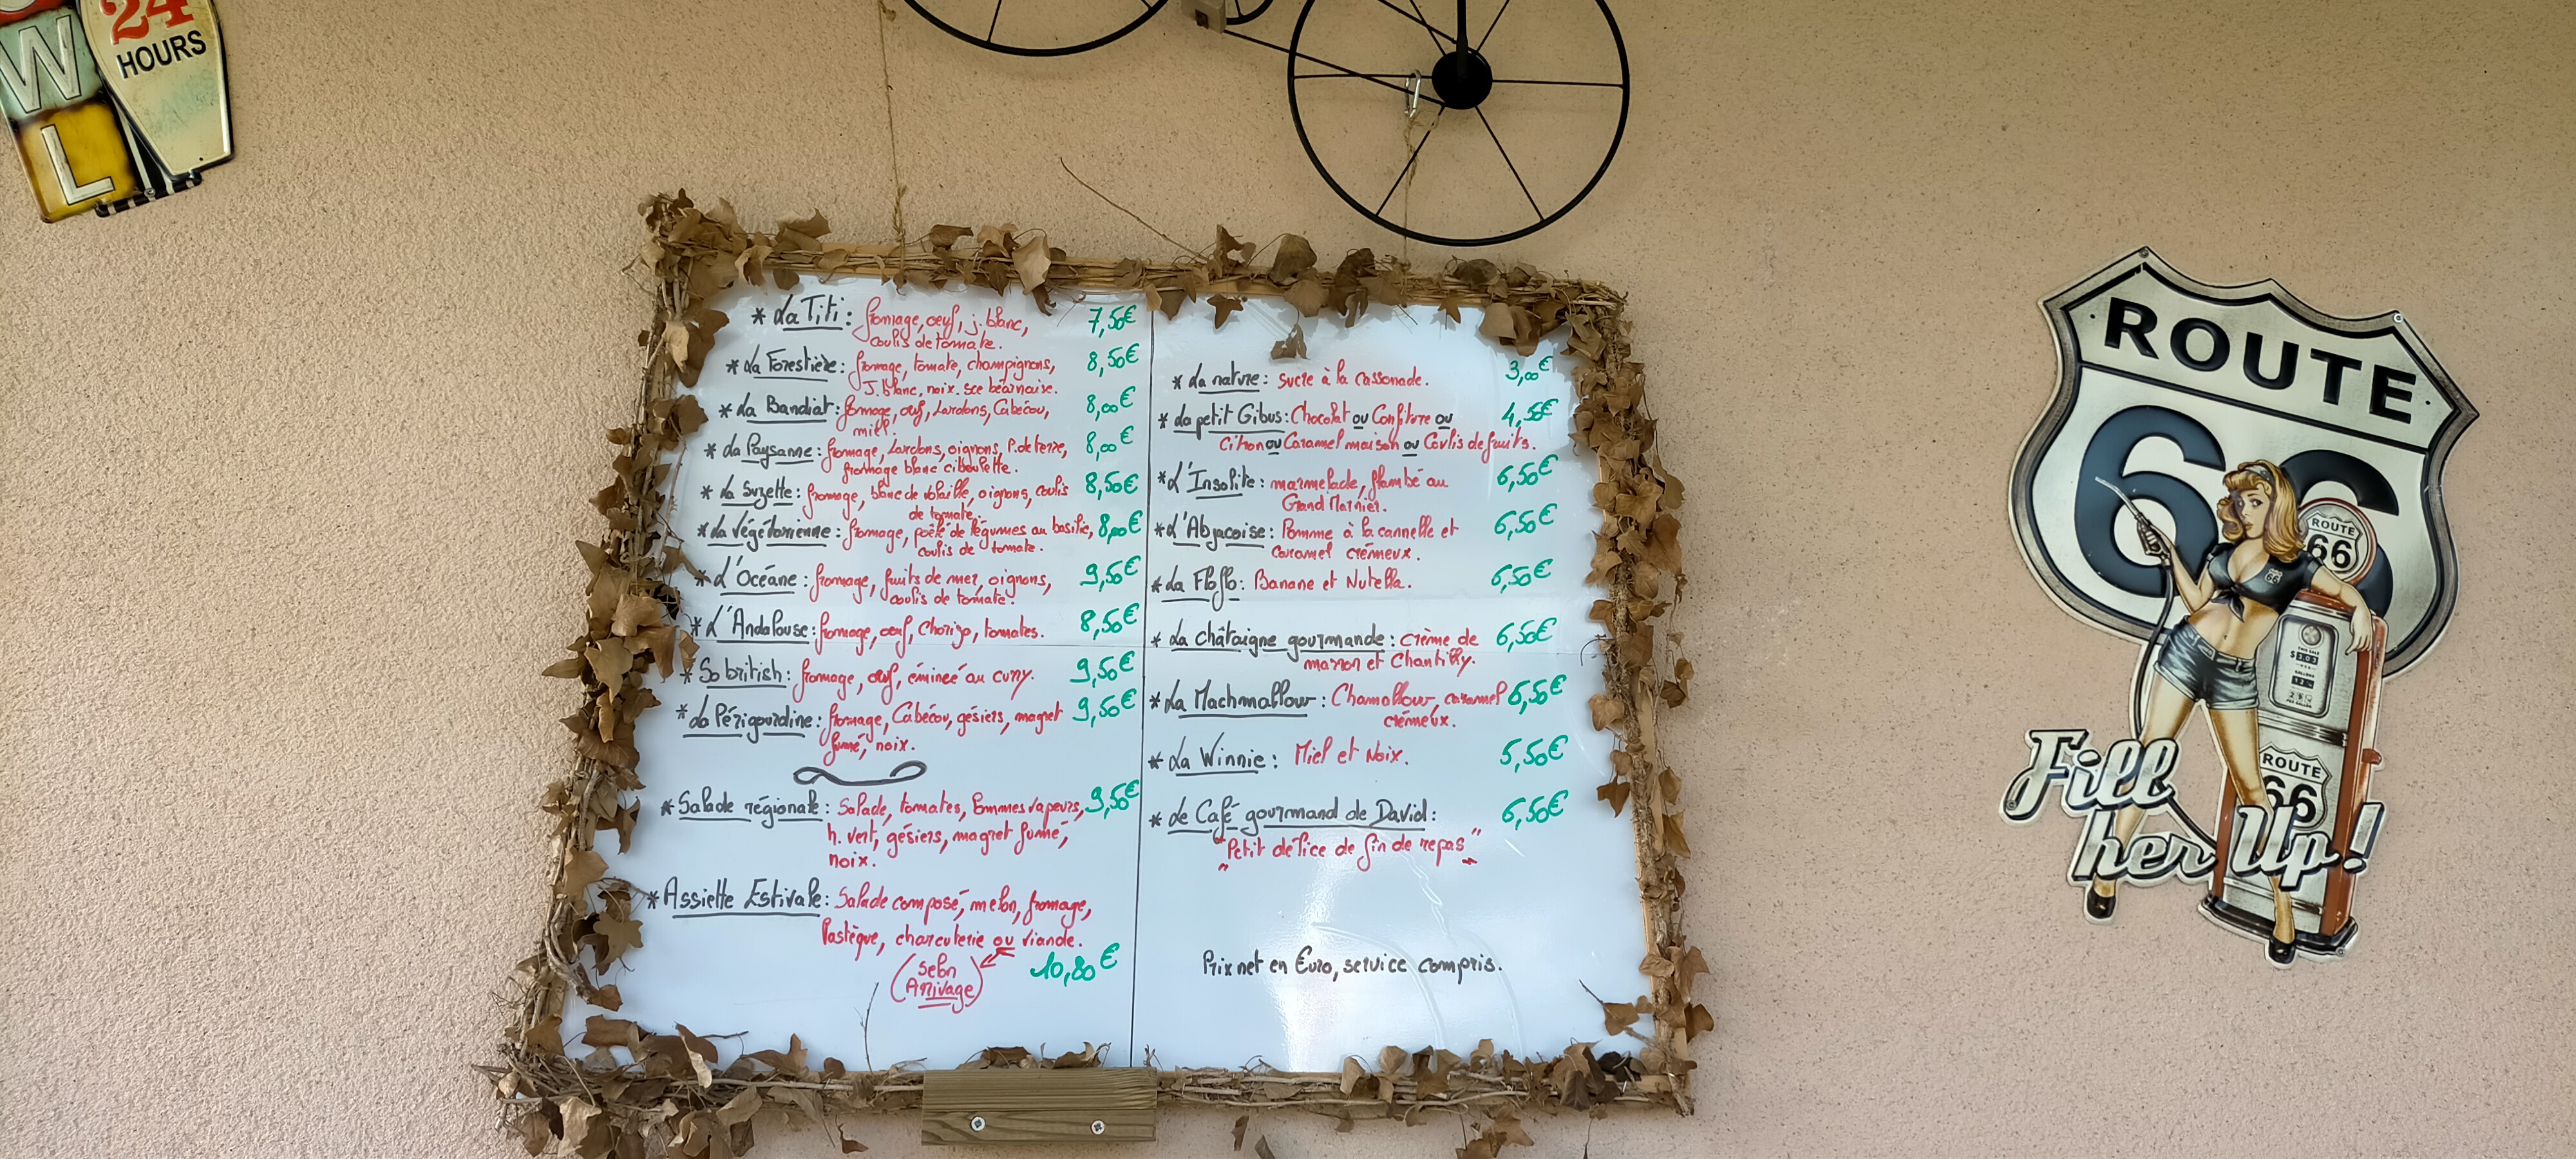 24
HOURS
W
L
* La Titi : fromage, oeuf, j. blanc, 7,50€
coulis de tomate.
* La Forestière : fromage, tomate, champignons, 8,50€
J. blanc, noix. sce béarnaise.
* La Bandiat : fromage, œuf, Lardons, Cabécou, 8,00€
miel.
* La Paysanne : fromage, Lardons, oignons, P. de terre, 8,00€
fromage blanc ciboulette.
* La Suzette : fromage, blanc de volaille, oignons, coulis 8,50€
de tomate.
* La Végétarienne : fromage, poêlé de légumes au basilic, 8,00€
coulis de tomate.
* L'Océane : fromage, fruits de mer, oignons, 9,50€
coulis de tomate.
* L'Andalouse : fromage, oeuf, Chorizo, tomates. 8,50€
* So british : fromage, œuf, émincé au curry. 9,50€
* La Périgourdine : fromage, Cabécou, gésiers, magret 9,50€
fumé, noix.
* Salade régionale : Salade, tomates, Pommes vapeurs, 9,50€
h. vert, gésiers, magret fumé,
noix.
* Assiette Estivale : Salade composé, melon, fromage,
Pastèque, charcuterie ou viande.
(Selon 10,80€
Arrivage)
* La nature : sucre à la cassonade. 3,00€
* La petit Gibus : Chocolat ou Confiture ou 4,50€
citron ou Caramel maison ou Coulis de fruits.
* L'Insolite : marmelade, flambé au 6,50€
Grand Marnier.
* L'Abjacoise : Pomme à la cannelle et 6,50€
caramel crémeux.
* La Floflo : Banane et Nutella. 6,50€
* La châtaigne gourmande : crème de 6,50€
marron et Chantilly.
* La Machmallow : Chamallow, caramel 6,50€
crémeux.
* La Winnie : Miel et Noix. 5,50€
* Le Café gourmand de David : 6,50€
"Petit délice de fin de repas"
Prix net en Euro, service compris.
ROUTE
66
ROUTE
66
66
ROUTE
66
Fill
her Up!